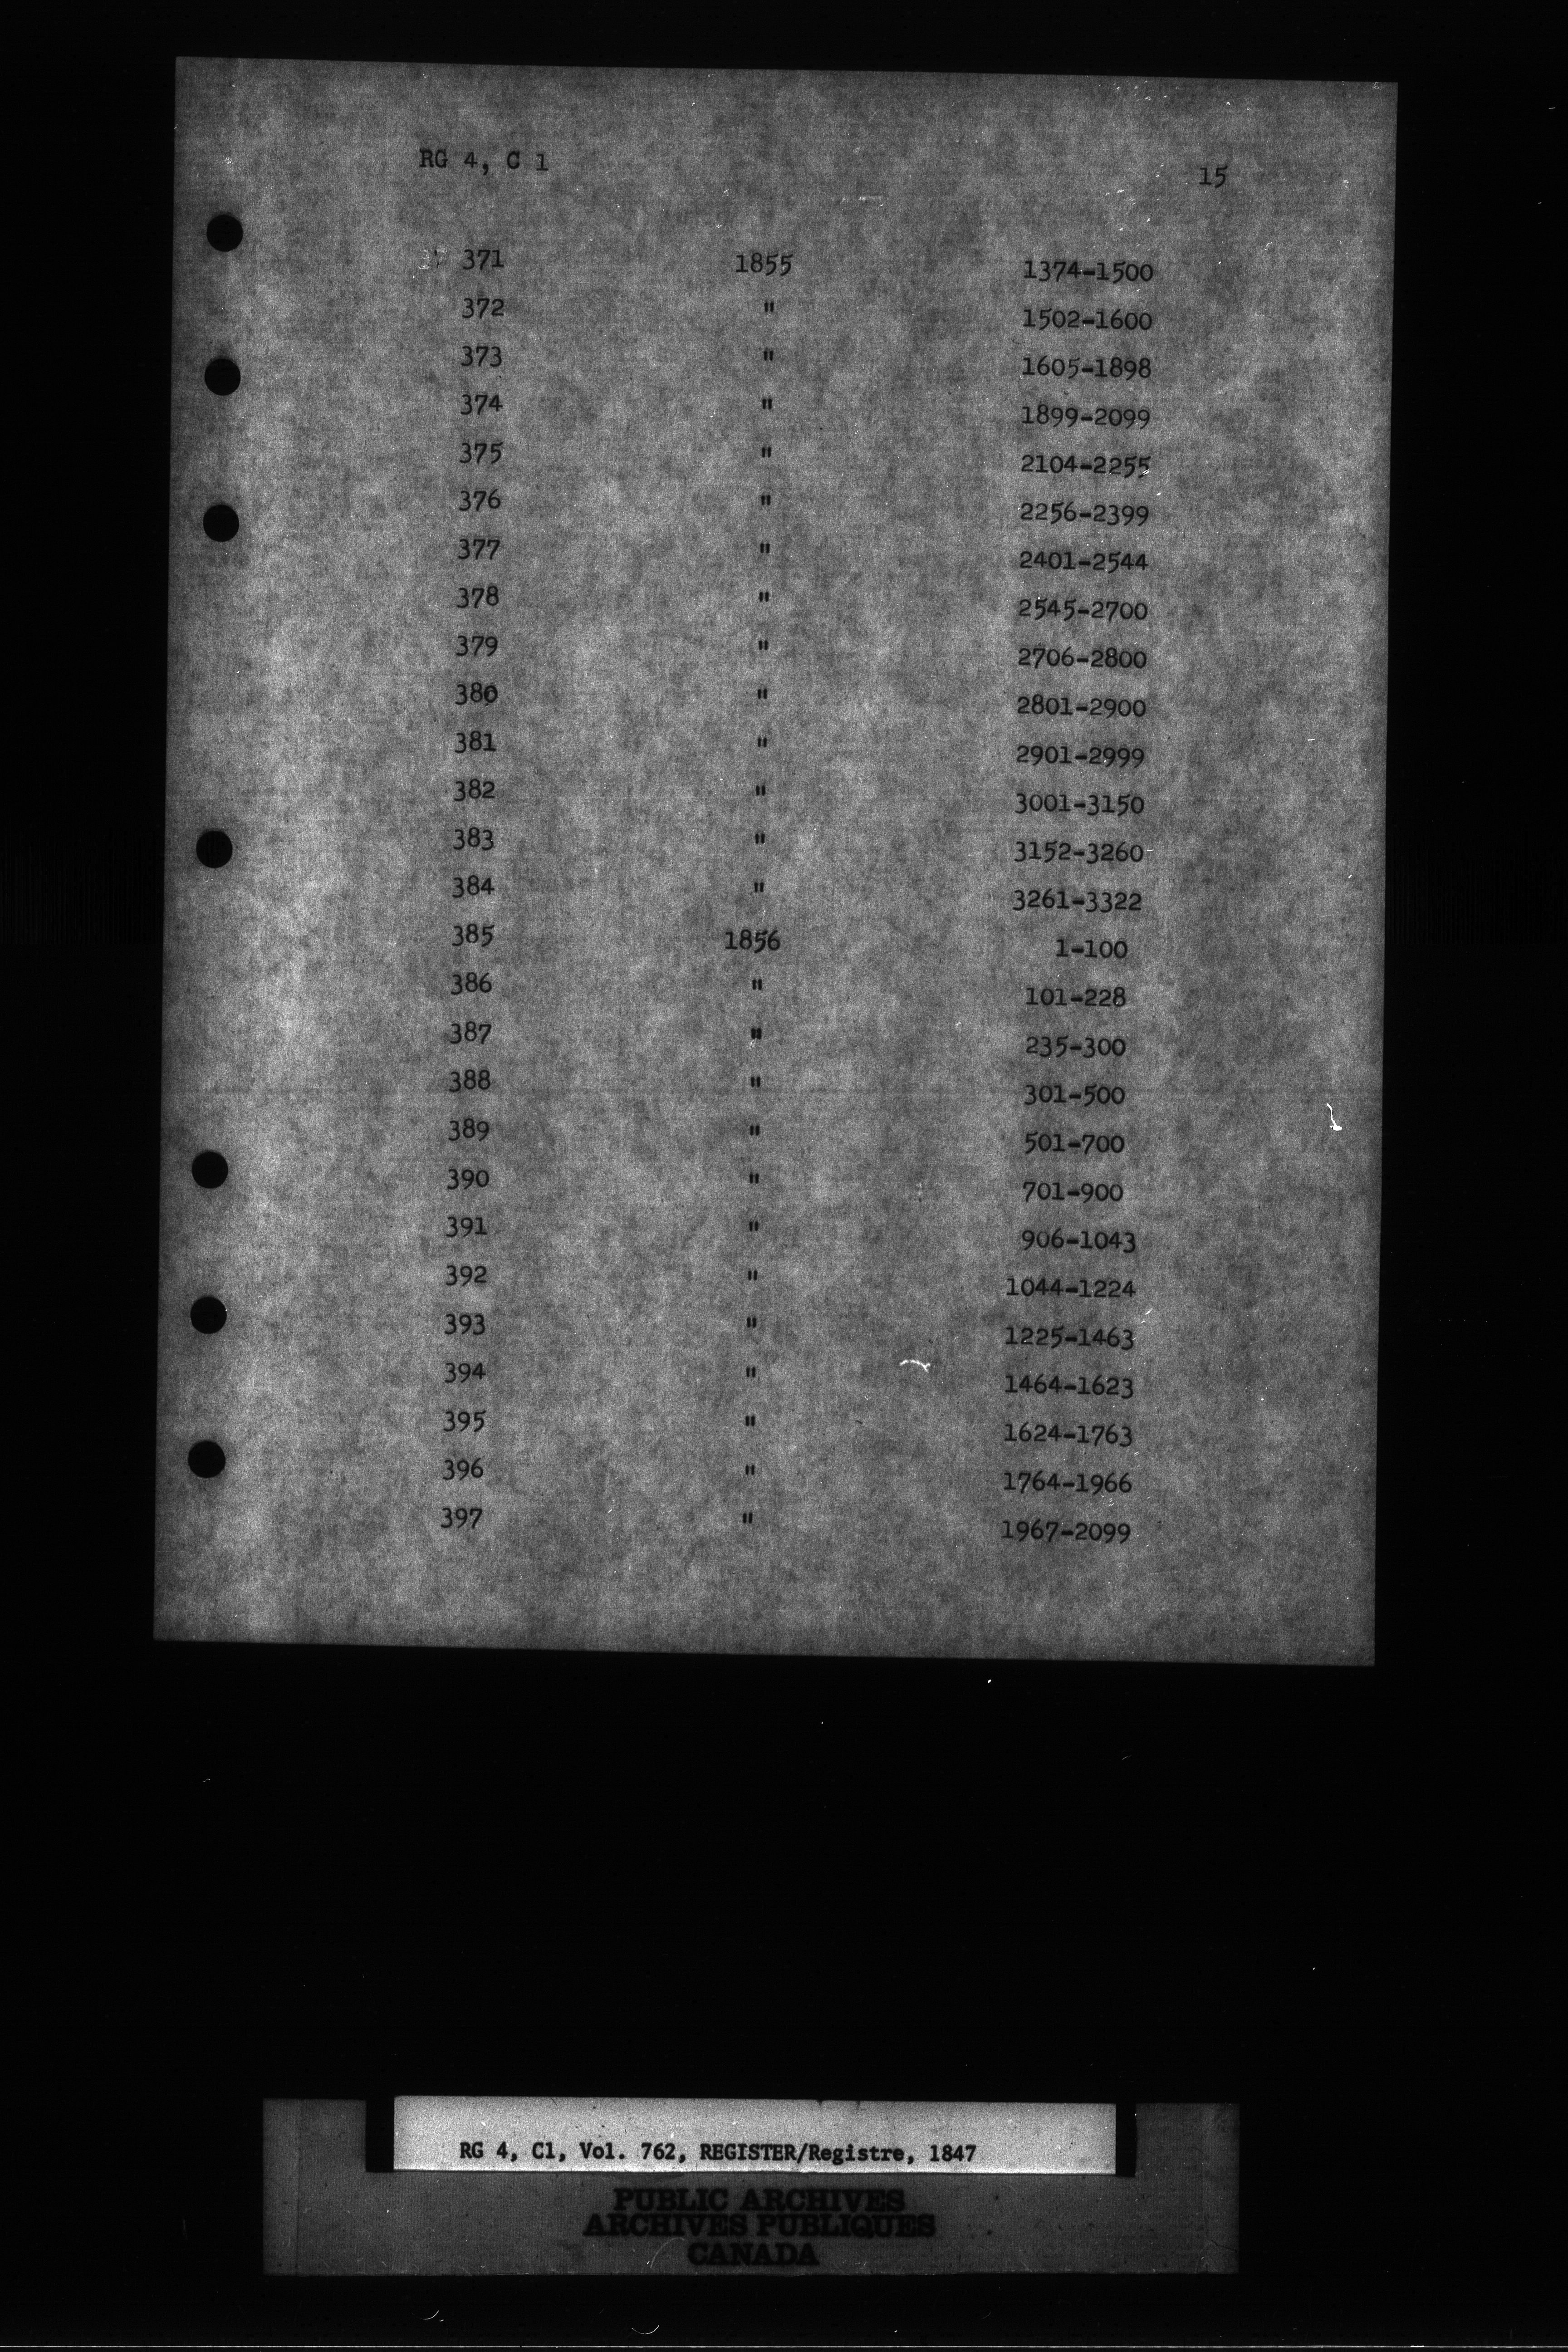 RG 4, C 1 15
371 1855 1374-1500
372 " 1502-1600
373 " 1605-1898
374 " 1899-2099
375 " 2104-2255
376 " 2256-2399
377 " 2401-2544
378 " 2545-2700
379 " 2706-2800
380 " 2801-2900
381 " 2901-2999
382 " 3001-3150
383 " 3152-3260
384 " 3261-3322
385 1856 1-100
386 " 101-228
387 " 235-300
388 " 301-500
389 " 501-700
390 " 701-900
391 " 906-1043
392 " 1044-1224
393 " 1225-1463
394 " 1464-1623
395 " 1624-1763
396 " 1764-1966
397 " 1967-2099
RG 4, C1, Vol. 762, REGISTER/Registre, 1847
PUBLIC ARCHIVES
ARCHIVES PUBLIQUES
CANADA